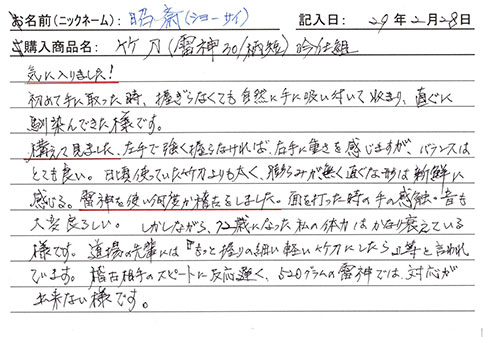 お名前(ニックネーム): 昭斎(ショーサイ) 記入日: 29年2月28日
ご購入商品名: 竹刀(雷神30/柄短)吟仕組
気に入りました!
初めて手に取った時、握ぎらなくても自然に手に吸い付いて収まり、直ぐに
馴染んできた様です。
構えて見ました、左手で強く握らなければ、右手に重さを感じますが、バランスは
とも良い。日頃使っていた竹刀よりも太く、膨らみが無く直ぐな形は新鮮に
感じる。雷神を使い何度か稽古をしました。面を打った時の手の感触・音も
大変良ろしい。しかしながら、72歳になった私の体力はかなり衰えている
様です。道場の先輩には『もっと握りの細い軽い竹刀にしたら』等と言われ
ています。稽古相手のスピードに反応遅く、520グラムの雷神では、対応が
出来ない様です。